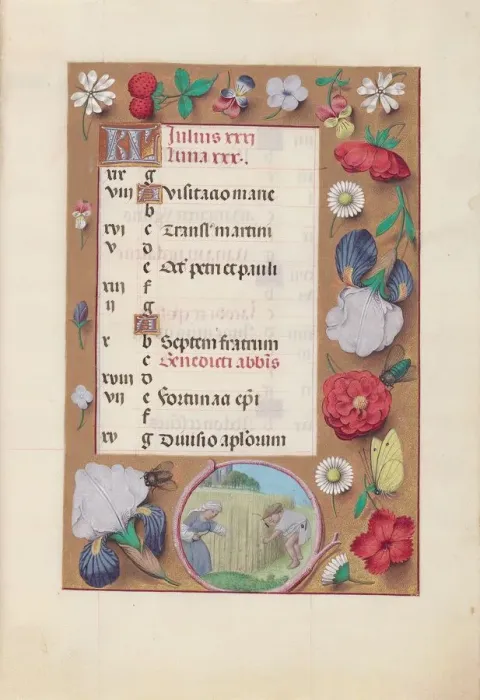 KL Julius xxxi
Luna xxx.
xix g
viii A Visitacio marie
b
xvi c Transl' martini
v d
e Oct petri et pauli
xiii f
ii g
A
x b Septem fratrum
c Benedicti abbis
xviii d
vii e epi
f
xv g Divisio aplorum